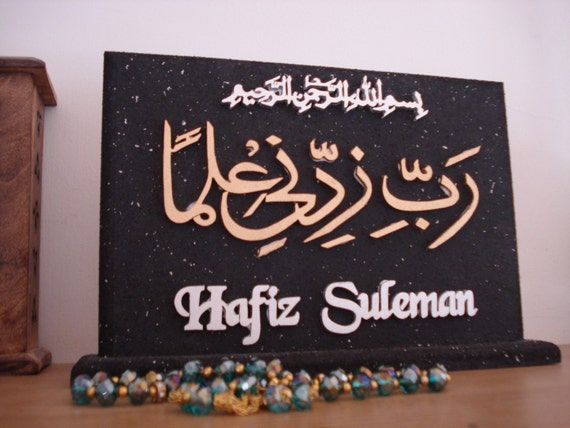 بسم الله الرحمن الرحيم
رَبِّ زِدْنِي عِلْمًا
Hafiz Suleman